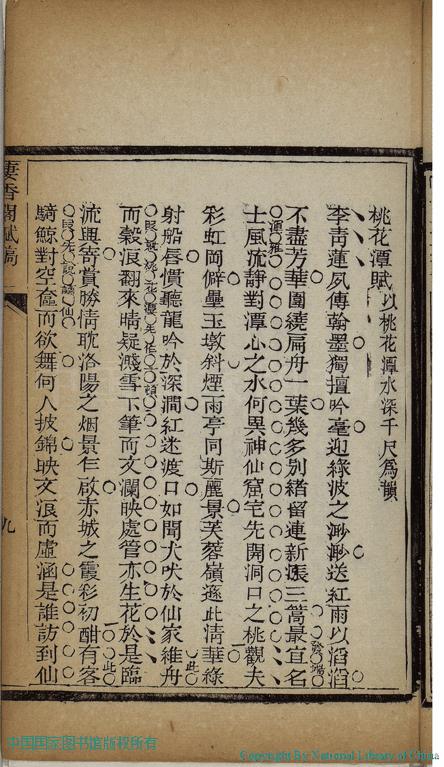 桃花潭賦以桃花潭水深千尺爲韻
李青蓮夙傳翰墨獨擅吟毫迎綠波之渺渺送紅雨以滔滔
不盡芳華圍繞扁舟一葉幾多別緒留連新漲三篙最宜名
士風流靜對潭心之水何異神仙窟宅先開洞口之桃觀夫
彩虹岡僻壘玉墩斜煙雨亭同斯麗景芙蓉嶺遜此淸華綠
射船唇慣聽龍吟於深澗紅迷渡口如聞犬吠於仙家維舟
而縠浪翻來晴疑濺雪下筆而文瀾映處管亦生花於是臨
流興耆賞勝情耽洛陽之烟景乍啟赤城之霞彩初酣有客
騎鯨對空奩而欲舞何人披錦映文浪而虛涵是誰訪到仙
棲香閣賦稿
九
中国国家图书馆版权所有
Copyright By National Library of China